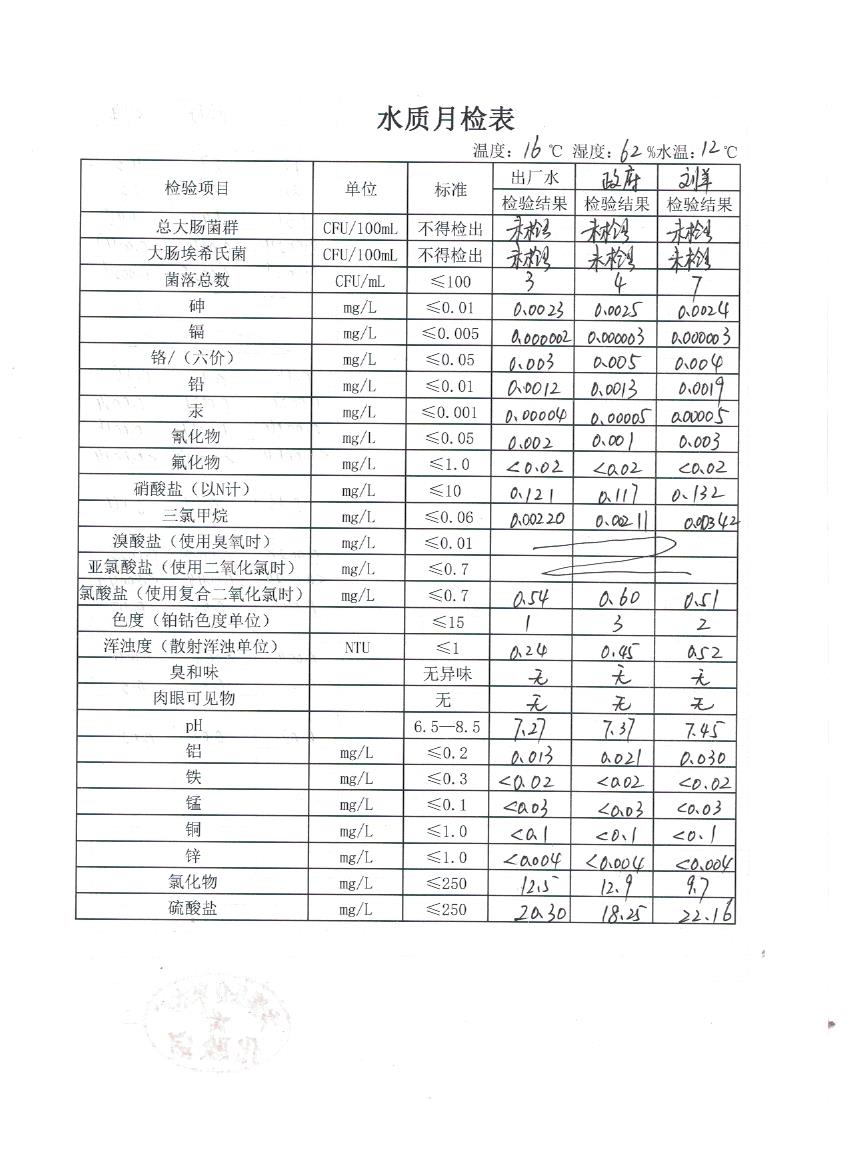 水质月检表
温度：16℃ 湿度：62%水温：12℃
检验项目 单位 标准 出厂水 政府 刘羊
检验结果 检验结果 检验结果
总大肠菌群 CFU/100mL 不得检出 未检出 未检出 未检出
大肠埃希氏菌 CFU/100mL 不得检出 未检出 未检出 未检出
菌落总数 CFU/mL ≤100 3 4 7
砷 mg/L ≤0.01 0.0023 0.0025 0.0024
镉 mg/L ≤0.005 0.000002 0.000003 0.000003
铬/（六价） mg/L ≤0.05 0.003 0.005 0.004
铅 mg/L ≤0.01 0.0012 0.0013 0.0019
汞 mg/L ≤0.001 0.00004 0.00005 0.00005
氰化物 mg/L ≤0.05 0.002 0.001 0.003
氟化物 mg/L ≤1.0 <0.02 <0.02 <0.02
硝酸盐（以N计） mg/L ≤10 0.121 0.117 0.132
三氯甲烷 mg/L ≤0.06 0.00220 0.00211 0.00342
溴酸盐（使用臭氧时） mg/L ≤0.01
亚氯酸盐（使用二氧化氯时） mg/L ≤0.7
氯酸盐（使用复合二氧化氯时） mg/L ≤0.7 0.54 0.60 0.51
色度（铂钴色度单位） ≤15 1 3 2
浑浊度（散射浑浊单位） NTU ≤1 0.24 0.45 0.52
臭和味 无异味 无 无 无
肉眼可见物 无 无 无 无
pH 6.5—8.5 7.27 7.37 7.45
铝 mg/L ≤0.2 0.013 0.021 0.030
铁 mg/L ≤0.3 <0.02 <0.02 <0.02
锰 mg/L ≤0.1 <0.03 <0.03 <0.03
铜 mg/L ≤1.0 <0.1 <0.1 <0.1
锌 mg/L ≤1.0 <0.004 <0.004 <0.004
氯化物 mg/L ≤250 12.5 12.9 9.7
硫酸盐 mg/L ≤250 20.30 18.25 22.16